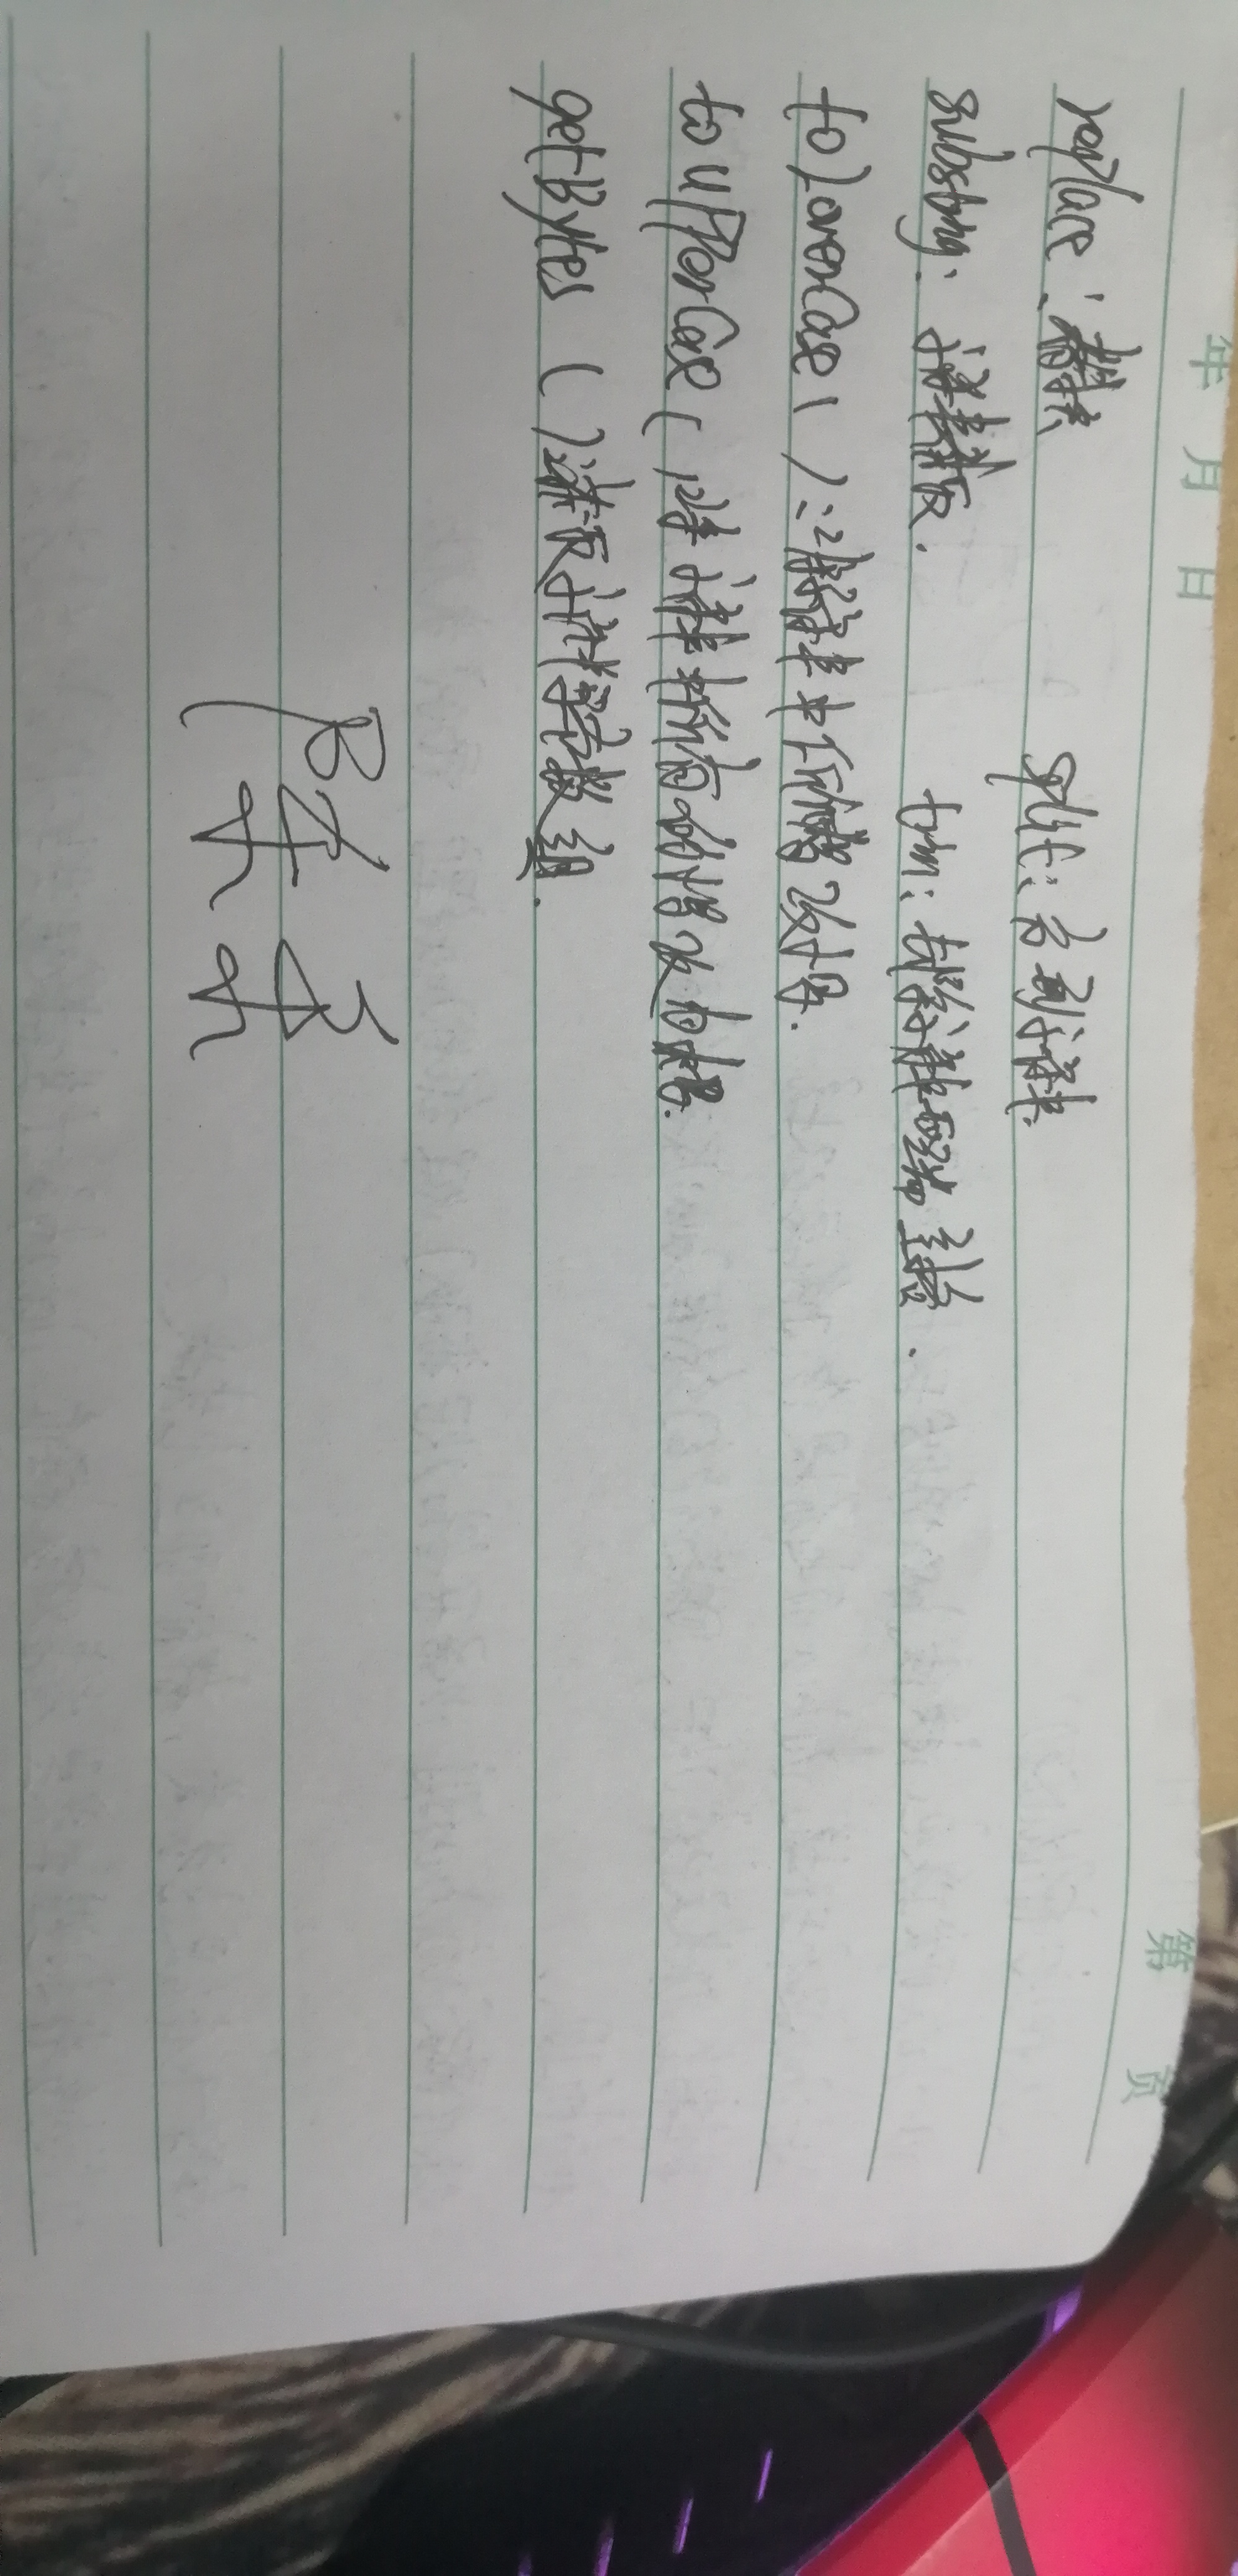 年 月 日 第 页
replace: 替换 split: 分割字符串
substring: 字符串截取. trim: 去除字符串两端空格.
toLowerCase(): 将字符串中所有 改小写.
toUpperCase( )将字符串所有 改为大写.
getBytes ( )获取字符串字节数组.